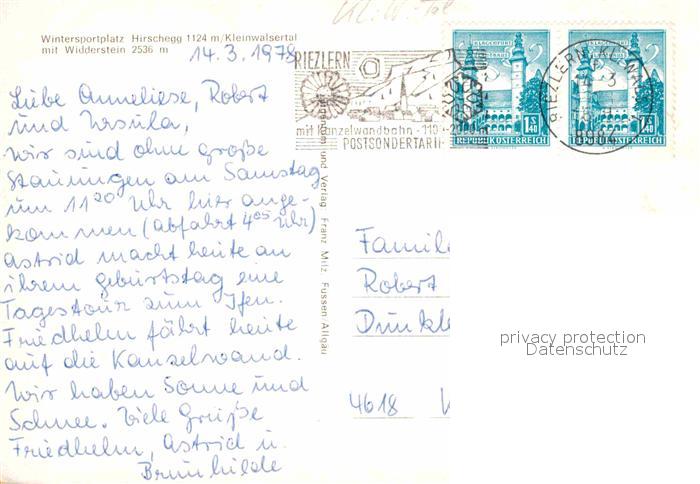 Wintersportplatz Hirschegg 1124 m/Kleinwalsertal
mit Widderstein 2536 m
14.3.1978
Liebe Anneliese, Robert
und Ursula,
wir sind ohne große
Stauungen am Samstag
um 11 20 Uhr hier ange-
kommen (abfahrt 4 05 Uhr)
Astrid macht heute an
ihrem geburtstag eine
Tagestour zum Ifen.
Friedhelm fährt heute
auf die Kanzelwand.
Wir haben Sonne und
Schnee. Viele Grüße
Friedhelm, Astrid u.
Brunhilde
Kl. W. Tal
RIEZLERN
mit Kanzelwandbahn
POSTSONDERTARIF
KLAGENFURT
S 1.40
REPUBLIK ÖSTERREICH
KLAGENFURT
S 1.40
REPUBLIK ÖSTERREICH
RIEZLERN
und Verlag Franz Milz, Füssen/Allgäu
Famili
Robert
Dunkl
4618
privacy protection
Datenschutz